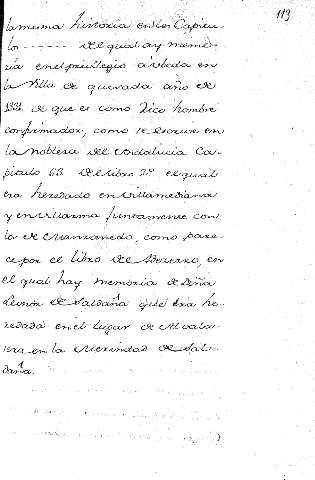 113
la misma historia en los Capitu-
los ------- del qual ay memo-
ria en el privilegio a Ubeda en
la Villa de quesada año de
1331 de que es como Rico hombre
confirmador, como se escrive en
la nobleza del Andalucia Ca-
pitulo 63 del libro 2º el qual
era heredado en Villamediana
y en Villasma juntamente con
lo de Manzanedo, como pare-
ce por el libro de Becerro, en
el qual hay memoria de Doña
Leonor de Saldaña que era he-
redada en el lugar de
en la Merindad de Sal-
daña.